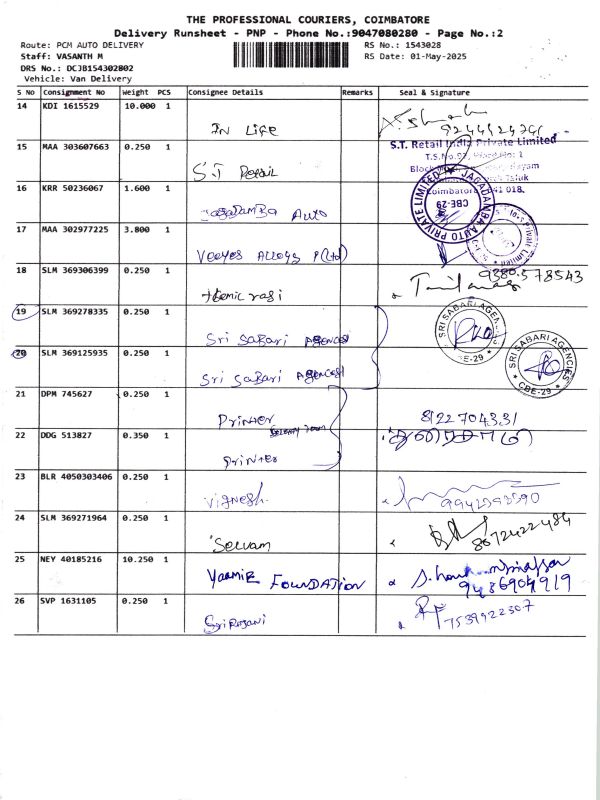 THE PROFESSIONAL COURIERS, COIMBATORE
Delivery Runsheet - PNP - Phone No.:9047080280 - Page No.:2
Route: PCM AUTO DELIVERY
Staff: VASANTH M
DRS No.: DCJB154302802
Vehicle: Van Delivery
RS No.: 1543028
RS Date: 01-May-2025
S No Consignment No Weight PCS Consignee Details Remarks Seal & Signature
14 KDI 1615529 10.000 1
IN LIFE
15 MAA 303607663 0.250 1
S.T Retail
S.T. Retail India Private Limited
16 KRR 50236067 1.600 1
Jagadamba Auto
JAGADAMBA AUTO PRIVATE LIMITED
CBE-29
17 MAA 302977225 3.800 1
Veeyes Alloys P(Ltd)
18 SLM 369306399 0.250 1
9380578543
19 SLM 369278335 0.250 1
Sri Sabari Agencies
SRI SABARI AGENCIES
CBE-29
20 SLM 369125935 0.250 1
Sri Sabari Agencies
SRI SABARI AGENCIES
CBE-29
21 DPM 745627 0.250 1
Printer
22 DDG 513827 0.350 1
Printer
23 BLR 4050303406 0.250 1
Vignesh
24 SLM 369271964 0.250 1
Selvam
8072422484
25 NEY 40185216 10.250 1
Yaamir Foundation
26 SVP 1631105 0.250 1
Sri Rojani
7539922307